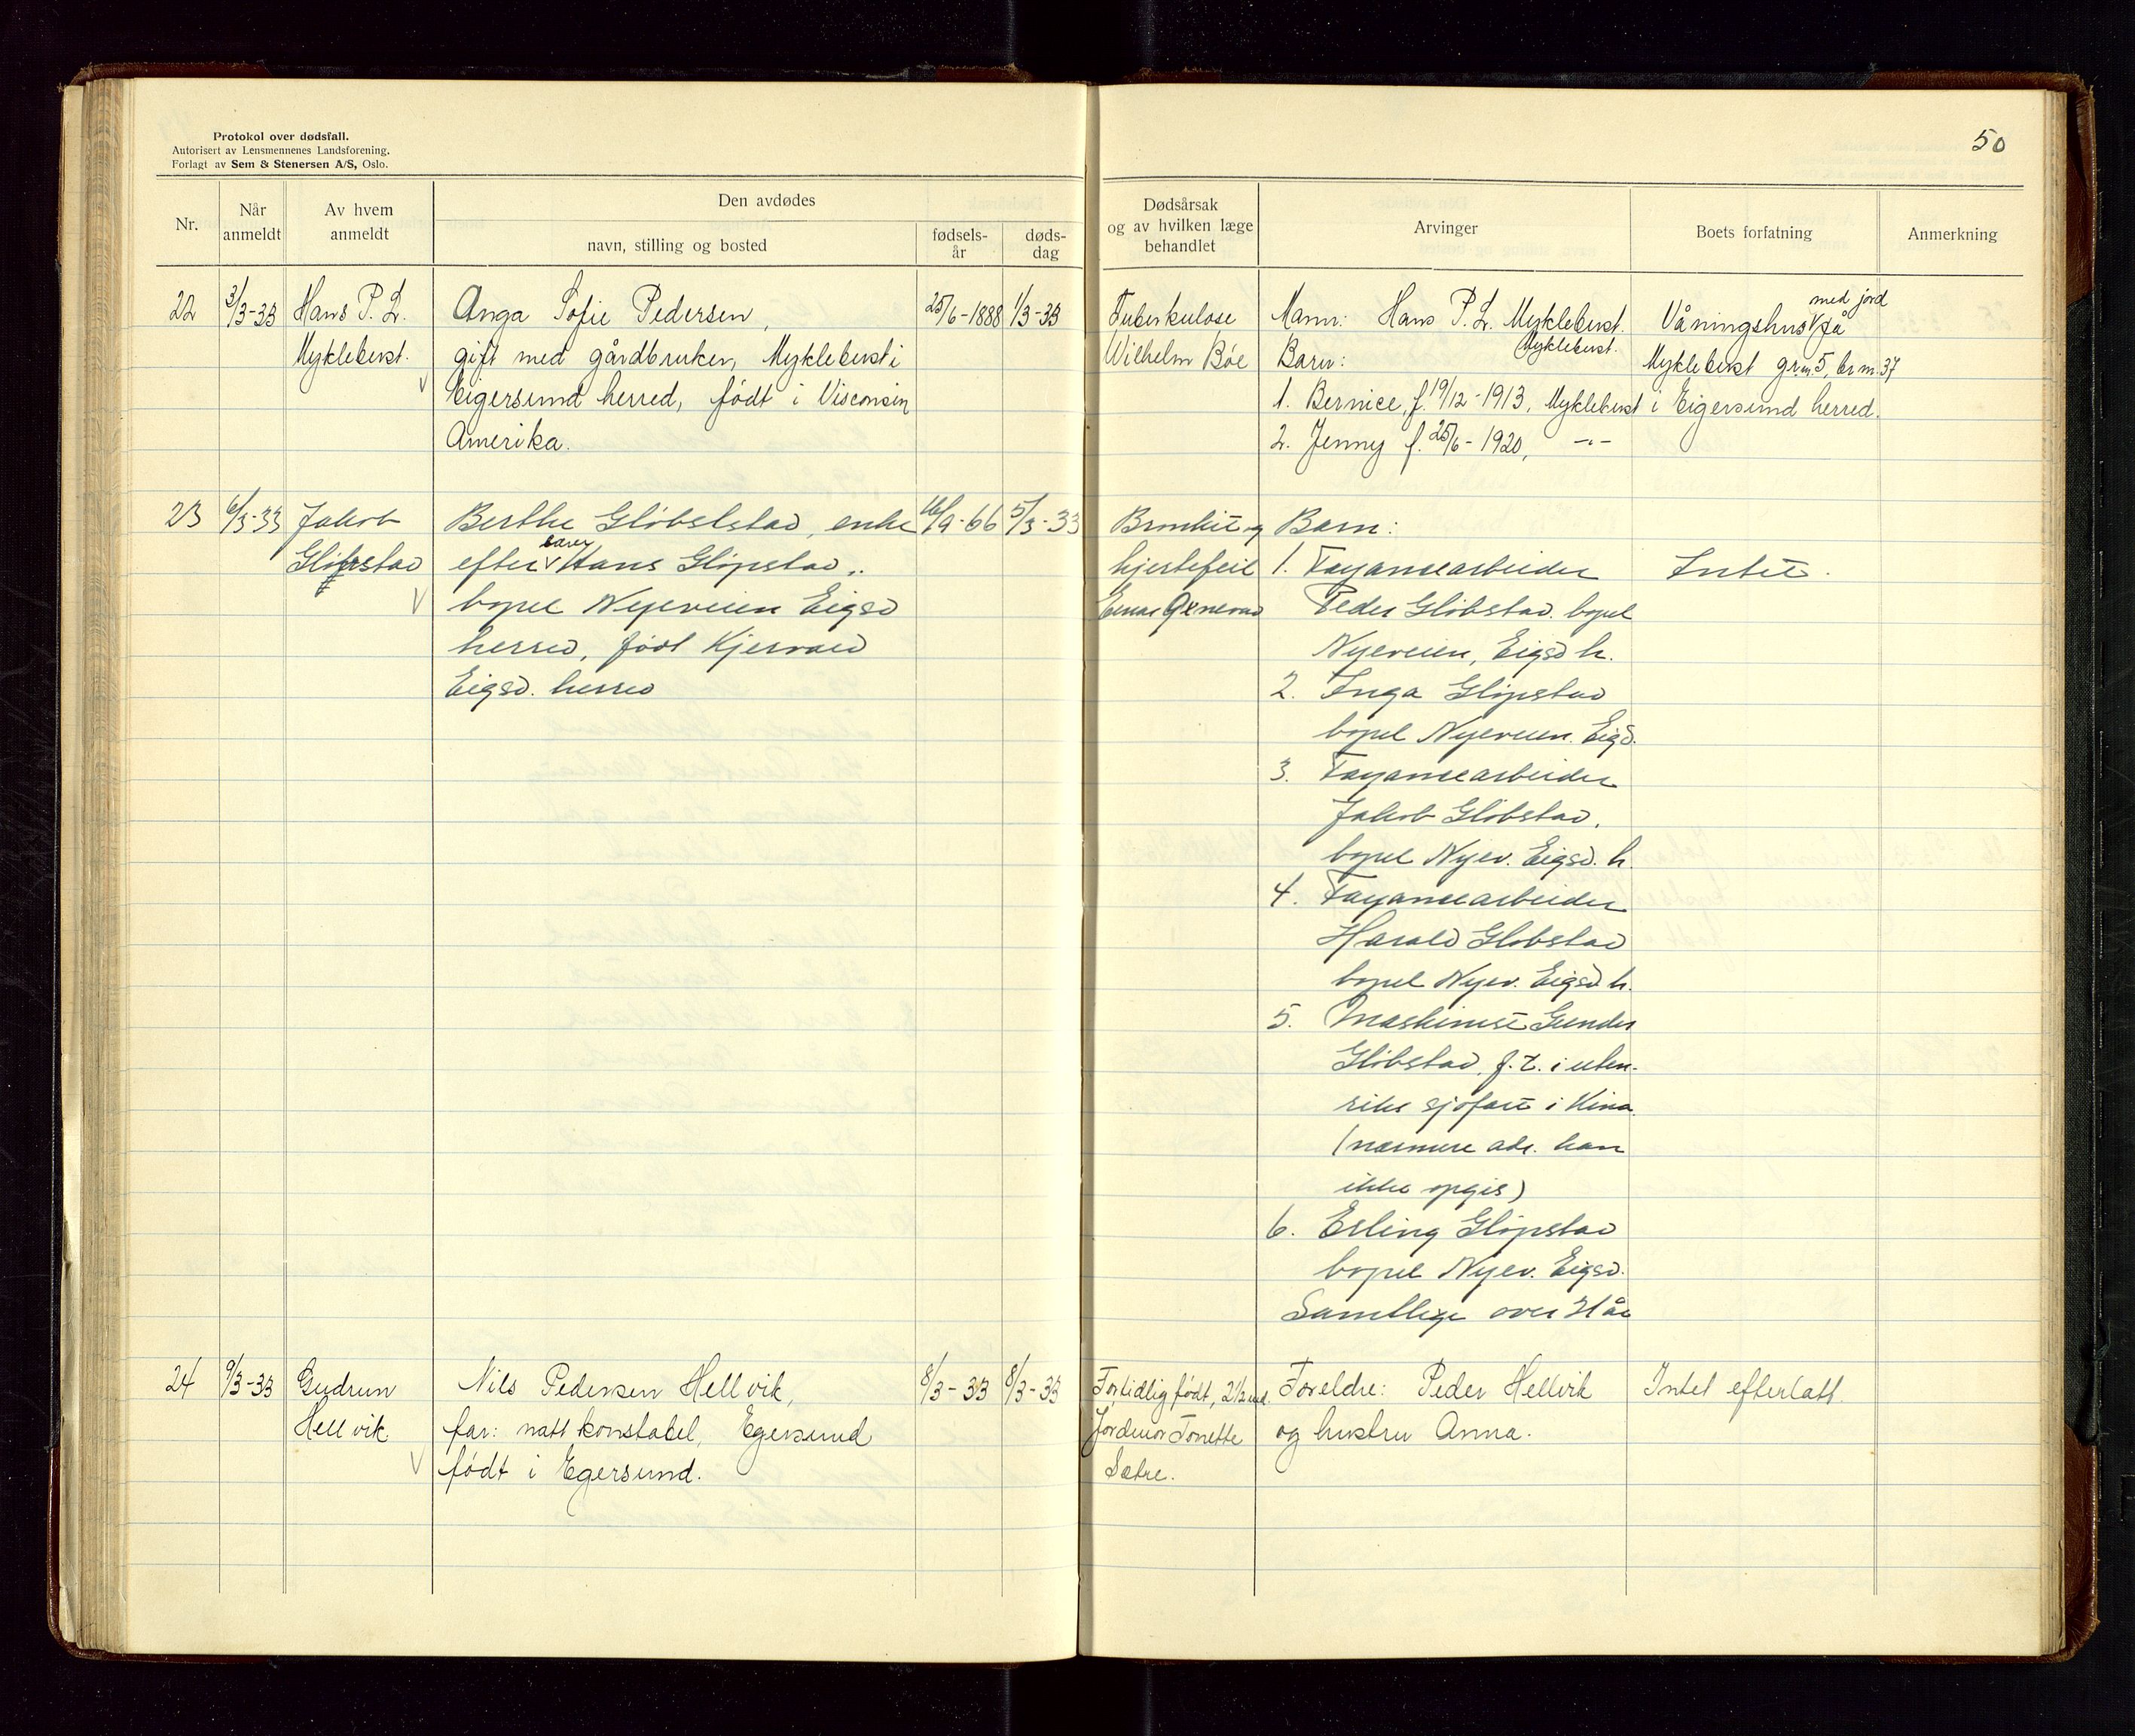 Protokol over dødsfall.
Autorisert av Lensmennenes Landsforening.
Forlagt av Sem & Stenersen A/S, Oslo.
50
Nr.
Når anmeldt
Av hvem anmeldt
Den avdødes
navn, stilling og bosted
fødselsår
dødsdag
Dødsårsak og av hvilken læge behandlet
Arvinger
Boets forfatning
Anmerkning
22
3/3-33
Hans P. L.
Myklebust.
Anga Sofie Pedersen,
gift med gårdbruker, Myklebust i
Eigersund herred, født i Visconsin
Amerika.
25/6-1888
1/3-33
Tuberkulose
Wilhelm Bøe
Mann: Hans P. L. Myklebust.
Myklebust.
Barn:
1. Bernice, f. 19/12-1913, Myklebust
2. Jenny f. 25/6-1920, -"-
med jord
Våningshus V på
Myklebust grn. 5, br.nr. 37
i Eigersund herred.
23
6/3-33
Jakob
Glipstad
Berthe Glöbstad, enke
efter V Hans Glipstad,
bopel Nyeveien Eigsd
herred, født Kjervald
Eigsd. herred
16/9-66
5/3-33
Bronkit og
hjertefeil
Barn:
1. Fayancearbeider
Peder Glöbstad. bopel
Nyeveien, Eigsd h.
2. Inga Glipstad
bopel Nyeveien. Eigd.
3. Fayancearbeider
Jakob Glöbstad,
bopel Nyev. Eigsd. h.
4. Fayancearbeider
Harald Globstad
bopel Nyev. Eigsd h.
5. Maskinist Gunder
Glöbstad, f. t. i uten-
riks sjöfart i Kina
(nærmere adr. kan
ikke opgis)
6. Erling Glipstad
bopel Nyev. Eigsd.
Samtlige over 21 år
Intet.
24
9/3-33
Gudrun
Hellvik.
Nils Pedersen Hellvik,
far: nattkonstabel, Egersund
født i Egersund.
8/3-33
8/3-33
For tidlig født, 2 1/2 md.
Jordmor Tonette
Sætre.
Foreldre: Peder Hellvik
og hustru Anna.
Intet efterlatt.